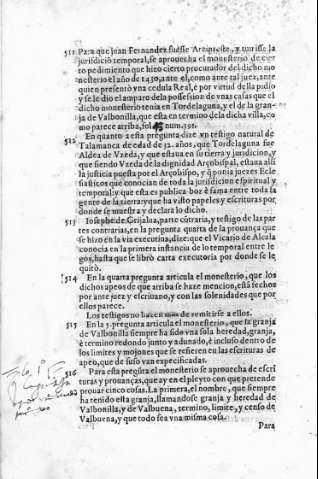 511 Para que Juan Fernandez fuesse Arcipreste, y tuuiesse la
jurisdiciõ temporal, se aprouecha el monesterio de cierto
pedimiento que hizo cierto procurador del dicho mo
nesterio el año de 1430, ante el, como ante tal juez, ante
quien presentò vna cedula Real, e por virtud de la pidio
y se le dio el amparo de la possession de vnas casas que el
dicho monesterio tenia en Tordelaguna, y el de la gran
ja de Valbonilla, que esta en termino de la dicha villa, co
mo parece arriba, fol. num. 398.
512 En quanto a esta pregunta dize vn testigo natural de
Talamanca de edad de 32. años, que Tordelaguna fue
Aldea de Vzeda, y que estaua en su tierra y juridicion, y
que siendo Vzeda de la dignidad Arçobispal, estaua alli
la justicia puesta por el Arçobispo, y q̃ ponia juezes Ecle
siasticos que conocian de toda la juridicion espiritual y
temporal: y que esta es publica boz e fama entre toda la
gente de la tierra: y que ha visto papeles y escrituras por
donde se muestra y declara lo dicho.
513 Iosephe de Grijalua, parte contraria, y testigo de las par
tes contrarias, en la pregunta quarta de la prouança que
se hizo en la via executiua, dize: que el Vicario de Alcala
conocia en la primera instancia de lo temporal entre le
gos, hasta que se librò carta executoria por donde se le
quitò.
514 En la quarta pregunta articula el monesterio, que los
dichos apeos de que arriba se haze mencion, està fechos
por ante juez y escriuano, y con las solenidades que por
ellos parece.
Los testigos no hazen mas de remitirse a ellos.
515 En la 5. pregunta articula el monesterio, que la granja
de Valbonilla siempre ha sido vna sola heredad, granja,
è termino redondo junto y adunado, è incluso dentro de
los limites y mojones que se refieren en las escrituras de
apeo, que de suso van expecificadas.
516 Para esta pregũta el monesterio se aprouecha de escri
turas y prouanças, que ay en el pleyto con que pretende
prouar cinco cosas. La primera, el nombre, que siempre
ha tenido esta granja, llamandose granja y heredad de
Valbonilla, y de Valbuena, termino, limite, y censo de
Valbuena, y que todo sea vna misma cosa.
Para